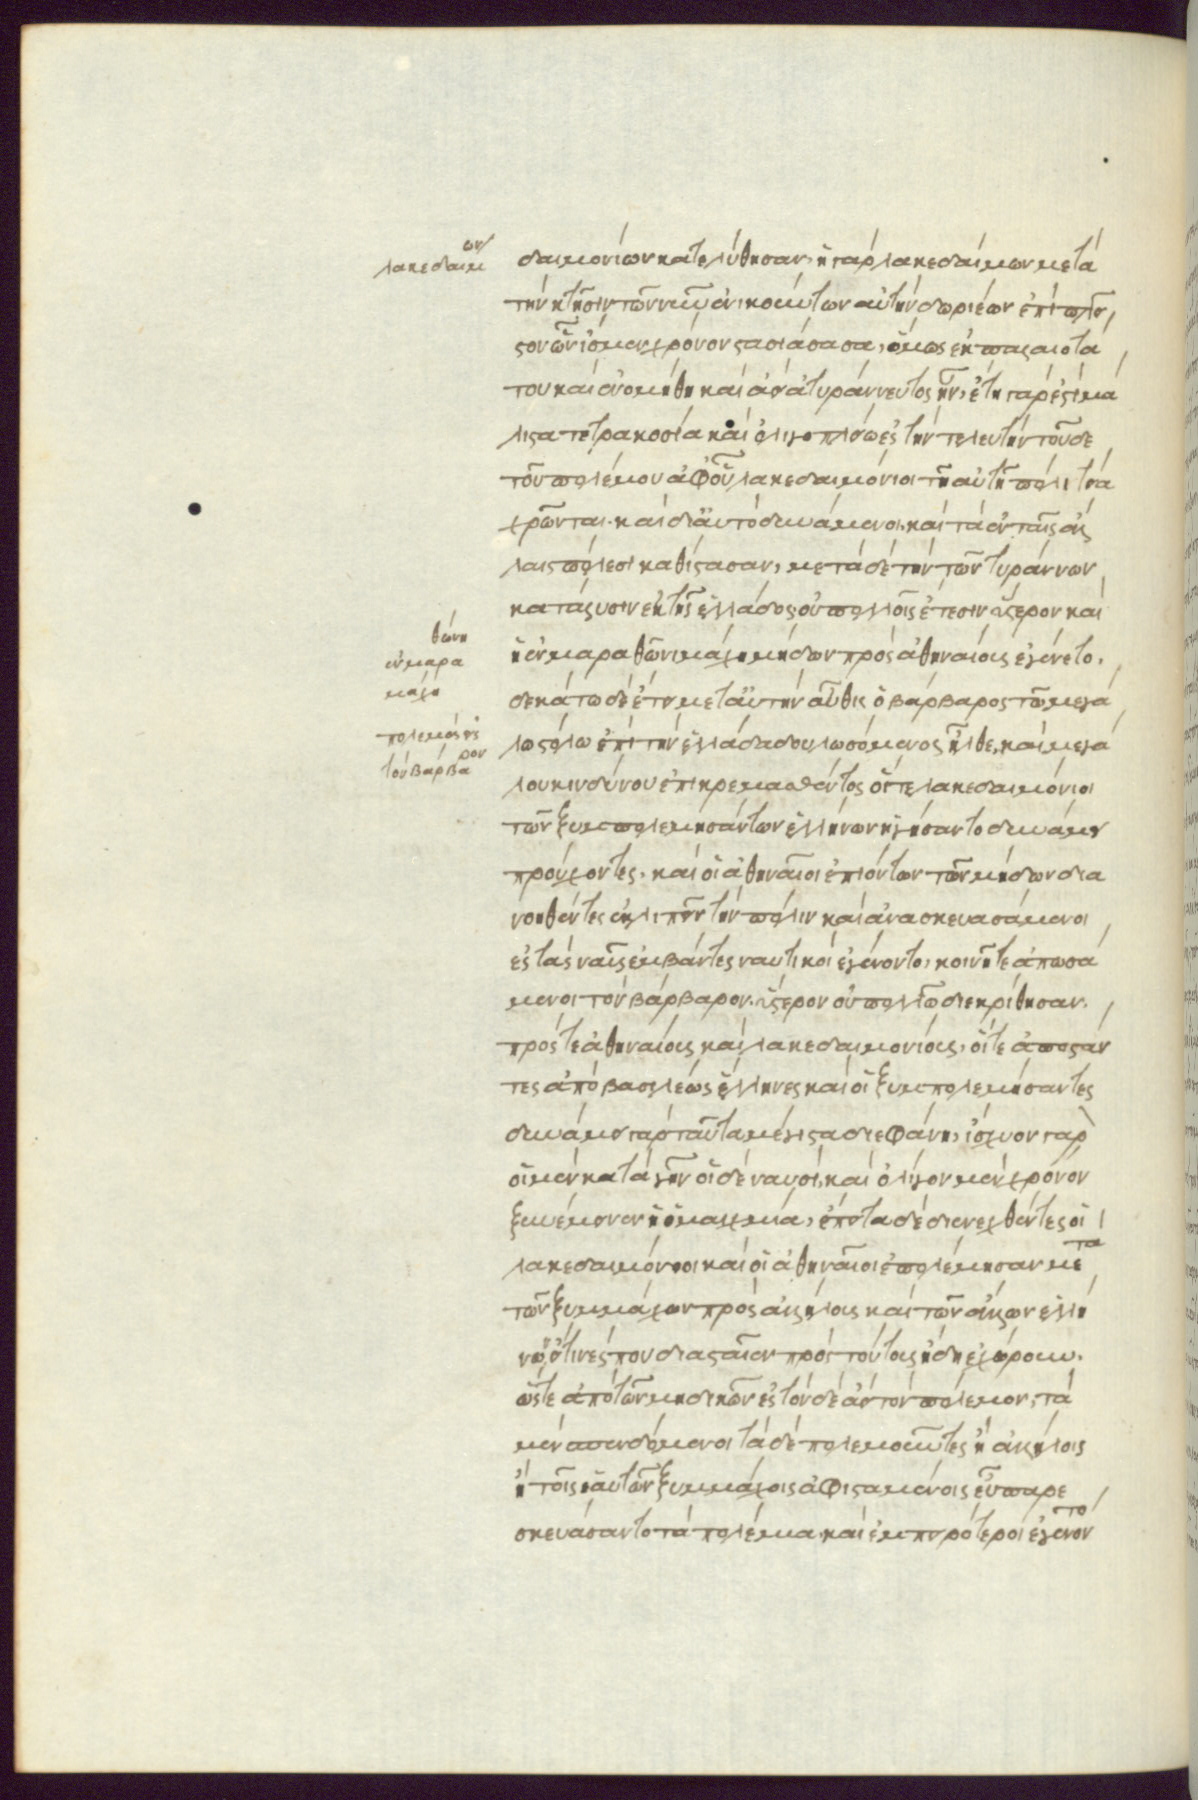 λακεδαίμων
δαιμονίων κατελύθησαν· ἡ γὰρ λακεδαίμων μετὰ
τὴν κτῆσιν τῶν νῦν ἐνοικούντων αὐτὴν δωριέων ἐπὶ πλεῖ
στον ὧν ἴσμεν χρόνον στασιάσασα, ὅμως ἐκ παλαιοτά
του καὶ εὐνομήθη καὶ ἀεὶ ἀτυράννευτος ἦν, ἔτη γάρ ἐστι μά
λιστα τετρακόσια καὶ ὀλίγῳ πλείω ἐς τὴν τελευτὴν τοῦδε
τοῦ πολέμου ἀφ' οὗ λακεδαιμόνιοι τῇ αὐτῇ πολιτεία
χρῶνται· καὶ δι' αὐτὸ δυνάμενοι, καὶ τὰ ἐν ταῖς ἄλ
λαις πόλεσι καθίστασαν, μετὰ δὲ τὴν τῶν τυράννων
κατάλυσιν ἐκ τῆς ἑλλάδος οὐ πολλοῖς ἔτεσιν ὕστερον καὶ
ἡ ἐν μαραθῶνι μάχη μήδων πρὸς ἀθηναίους ἐγένετο.
θῶνι
ἐν μαρα
μάχη
δεκάτω δὲ ἔτει μετ' αὐτὴν αὖθις ὁ βάρβαρος τῷ μεγά
πόλεμος εἰς
τὸν βάρβα
ρον
λῳ στόλῳ ἐπὶ τὴν ἑλλάδα δουλωσόμενος ἦλθε, καὶ μεγά
λου κινδύνου ἐπικρεμασθέντος οἵ τε λακεδαιμόνιοι
τῶν ξυμπολεμησάντων ἑλλήνων ἡγήσαντο δυνάμει
προύχοντες, καὶ οἱ ἀθηναῖοι ἐπιόντων τῶν μήδων δια
νοηθέντες ἐκλιπεῖν τὴν πόλιν καὶ ἀνασκευασάμενοι
ἐς τὰς ναῦς ἐμβάντες ναυτικοὶ ἐγένοντο, κοινῇ τε ἀπωσά
μενοι τὸν βάρβαρον, ὕστερον οὐ πολλῷ διεκρίθησαν
πρός τε ἀθηναίους καὶ λακεδαιμονίους, οἵ τε ἀποστάν
τες ἀπὸ βασιλέως ἕλληνες καὶ οἱ ξυμπολεμήσαντες
δυνάμει γὰρ ταῦτα μέγιστα διεφάνη, ἴσχυον γὰρ
οἱ μὲν κατὰ γῆν οἱ δὲ ναυσί, καὶ ὀλίγον μὲν χρόνον
ξυνέμεινεν ἡ ὁμαιχμία, ἔπειτα δὲ διενεχθέντες οἱ
λακεδαιμόνιοι καὶ οἱ ἀθηναῖοι ἐπολέμησαν μετὰ
τῶν ξυμμάχων πρὸς ἀλλήλους καὶ τῶν ἄλλων ἑλλή
νων εἴ τινές που διασταῖεν πρὸς τούτους ἤδη ἐχώρουν.
ὥστε ἀπὸ τῶν μηδικῶν ἐς τόνδε ἀεὶ τὸν πόλεμον, τὰ
μὲν σπενδόμενοι τὰ δὲ πολεμοῦντες ἢ ἀλλήλοις
ἢ τοῖς ἑαυτῶν ξυμμάχοις ἀφισταμένοις εὖ παρε
σκευάσαντο τὰ πολέμια, καὶ ἐμπειρότεροι ἐγένοντο